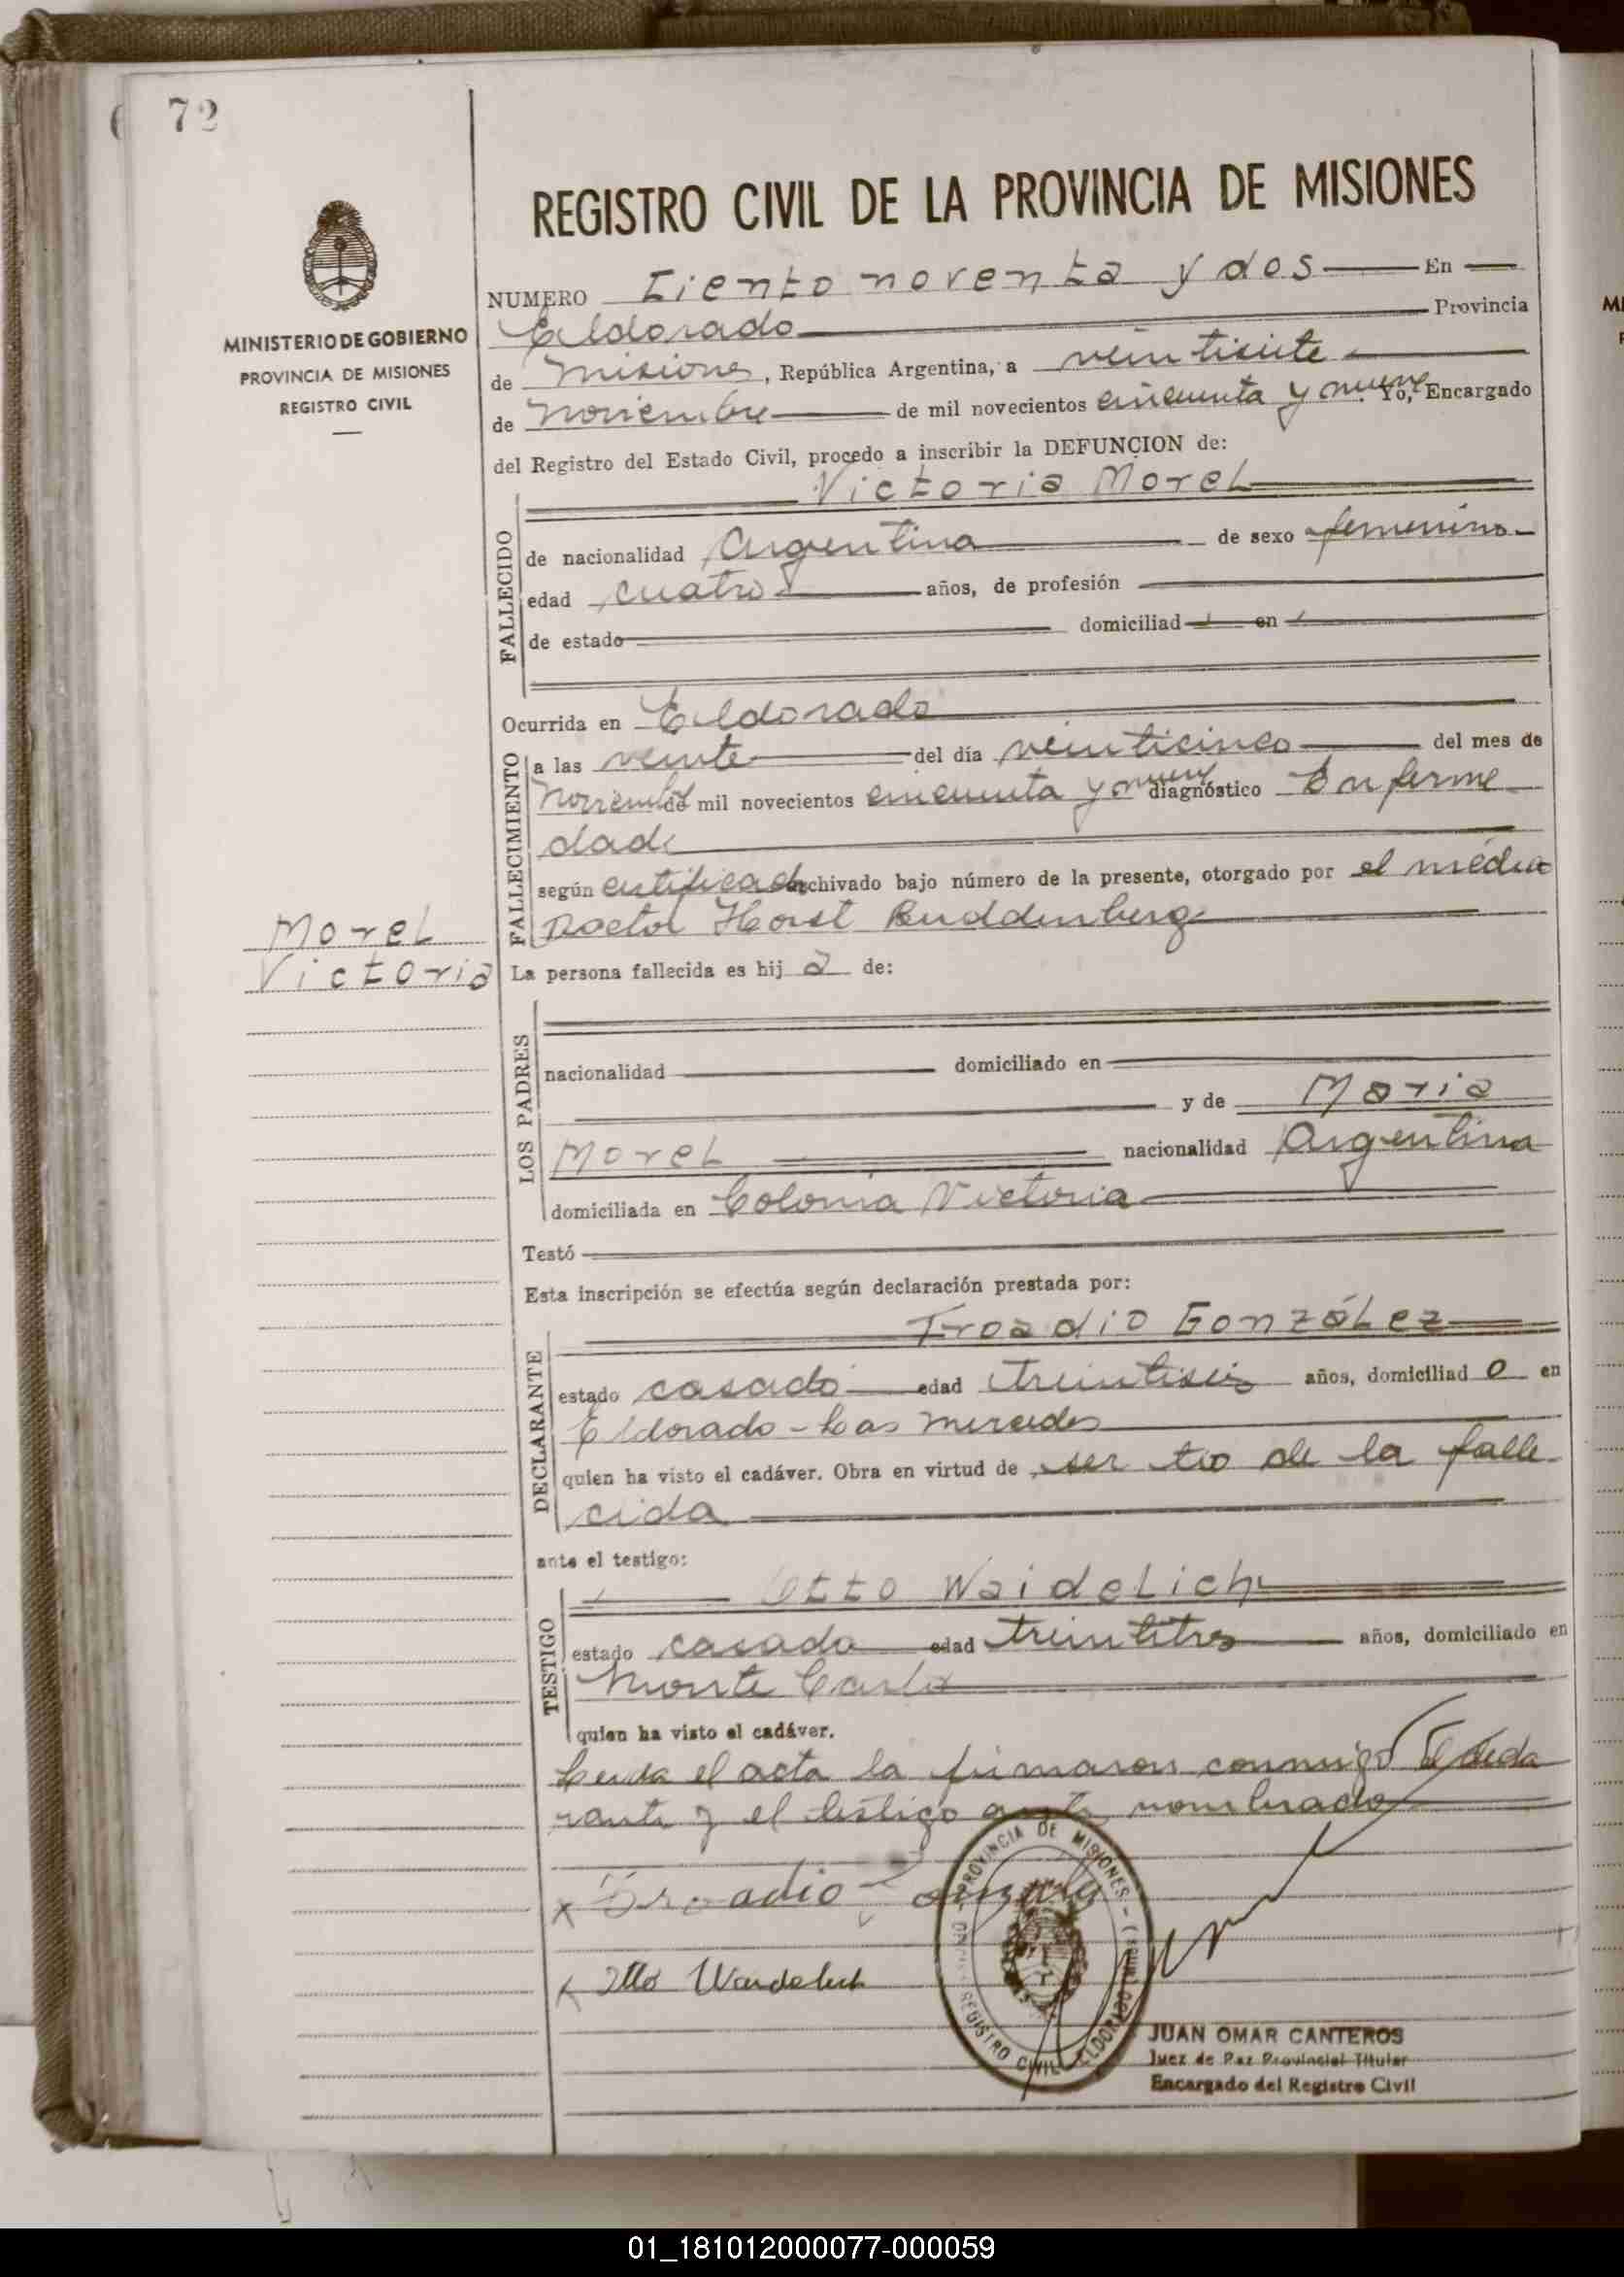 72
MINISTERIO DE GOBIERNO
PROVINCIA DE MISIONES
REGISTRO CIVIL
REGISTRO CIVIL DE LA PROVINCIA DE MISIONES
NUMERO Ciento noventa y dos En
Eldorado Provincia
de Misiones, República Argentina, a veintisiete
de Noviembre de mil novecientos cincuenta y nueve Yo, Encargado
del Registro del Estado Civil, procedo a inscribir la DEFUNCION de:
Victoria Morel
FALLECIDO
de nacionalidad Argentina de sexo femenino
edad cuatro años, de profesión
de estado domiciliad en
Ocurrida en Eldorado
FALLECIMIENTO
a las veinte del día veinticinco del mes de
Noviembre de mil novecientos cincuenta y nueve diagnóstico Enferme
dad
según certificado archivado bajo número de la presente, otorgado por el médico
Doctor Horst Buddenberg
Morel
Victoria
La persona fallecida es hij a de:
LOS PADRES
nacionalidad domiciliado en
y de Maria
Morel nacionalidad Argentina
domiciliada en Colonia Victoria
Testó
Esta inscripción se efectúa según declaración prestada por:
Troadio González
DECLARANTE
estado casado edad treintiseis años, domiciliad o en
Eldorado - Las Mercedes
quien ha visto el cadáver. Obra en virtud de ser tio de la falle
cida
ante el testigo:
Otto Waidelich
TESTIGO
estado casado edad treintitres años, domiciliado en
Monte Carlo
quien ha visto el cadáver.
Leida el acta la firmaron conmigo el decla
rante y el testigo ante nombrado
x Troadio Gonzalez
x Otto Waidelich
PROVINCIA DE MISIONES
REGISTRO CIVIL ELDORADO
JUAN OMAR CANTEROS
Juez de Paz Provincial Titular
Encargado del Registro Civil
01_181012000077-000059